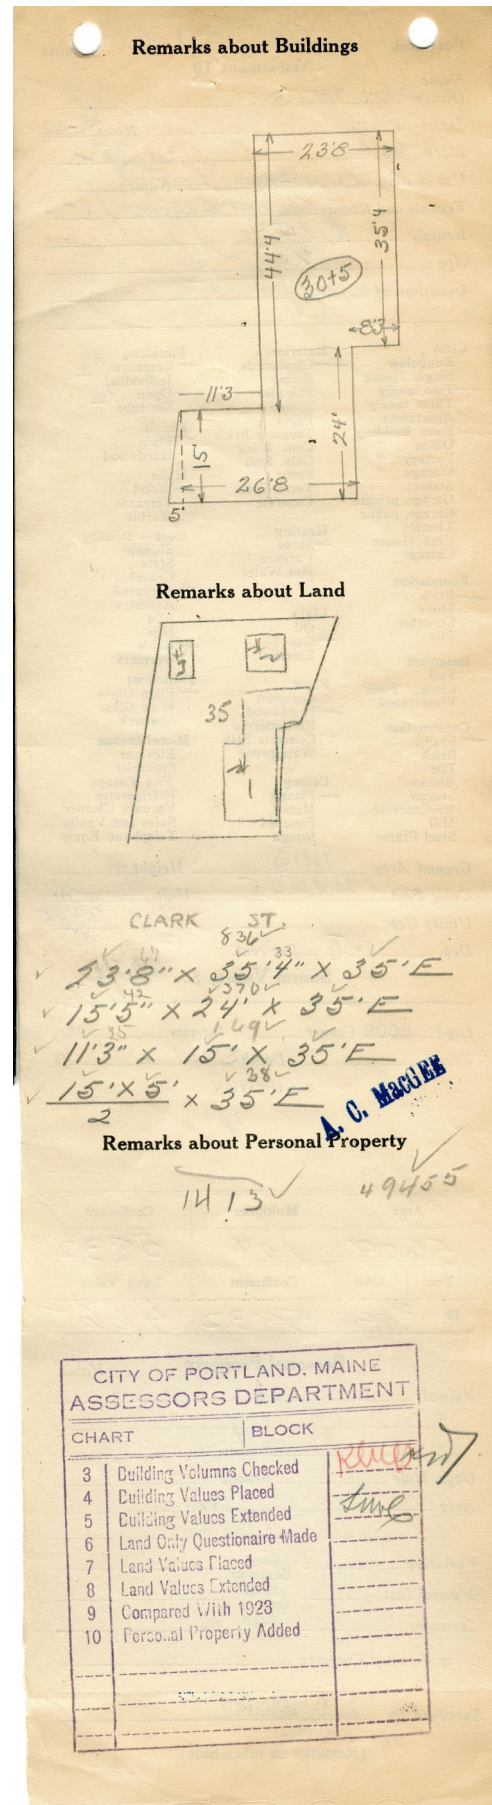 Remarks about Buildings
23'8
44'4
35'4
30+5
8'3
11'3
15'
24'
26'8
5'
Remarks about Land
#3
#2
35
#1
CLARK ST.
836
17 33
23'8" X 35'4" X 35'E
42 370
15'5" X 24' X 35'E
25 169
11'3" X 15' X 35'E
38
15' X 5' X 35'E
2
A. C. MacGEE
Remarks about Personal Property
1413
49455
CITY OF PORTLAND, MAINE
ASSESSORS DEPARTMENT
CHART BLOCK
3 Building Volumns Checked
4 Building Values Placed
5 Building Values Extended
6 Land Only Questionaire Made
7 Land Values Placed
8 Land Values Extended
9 Compared With 1923
10 Personal Property Added